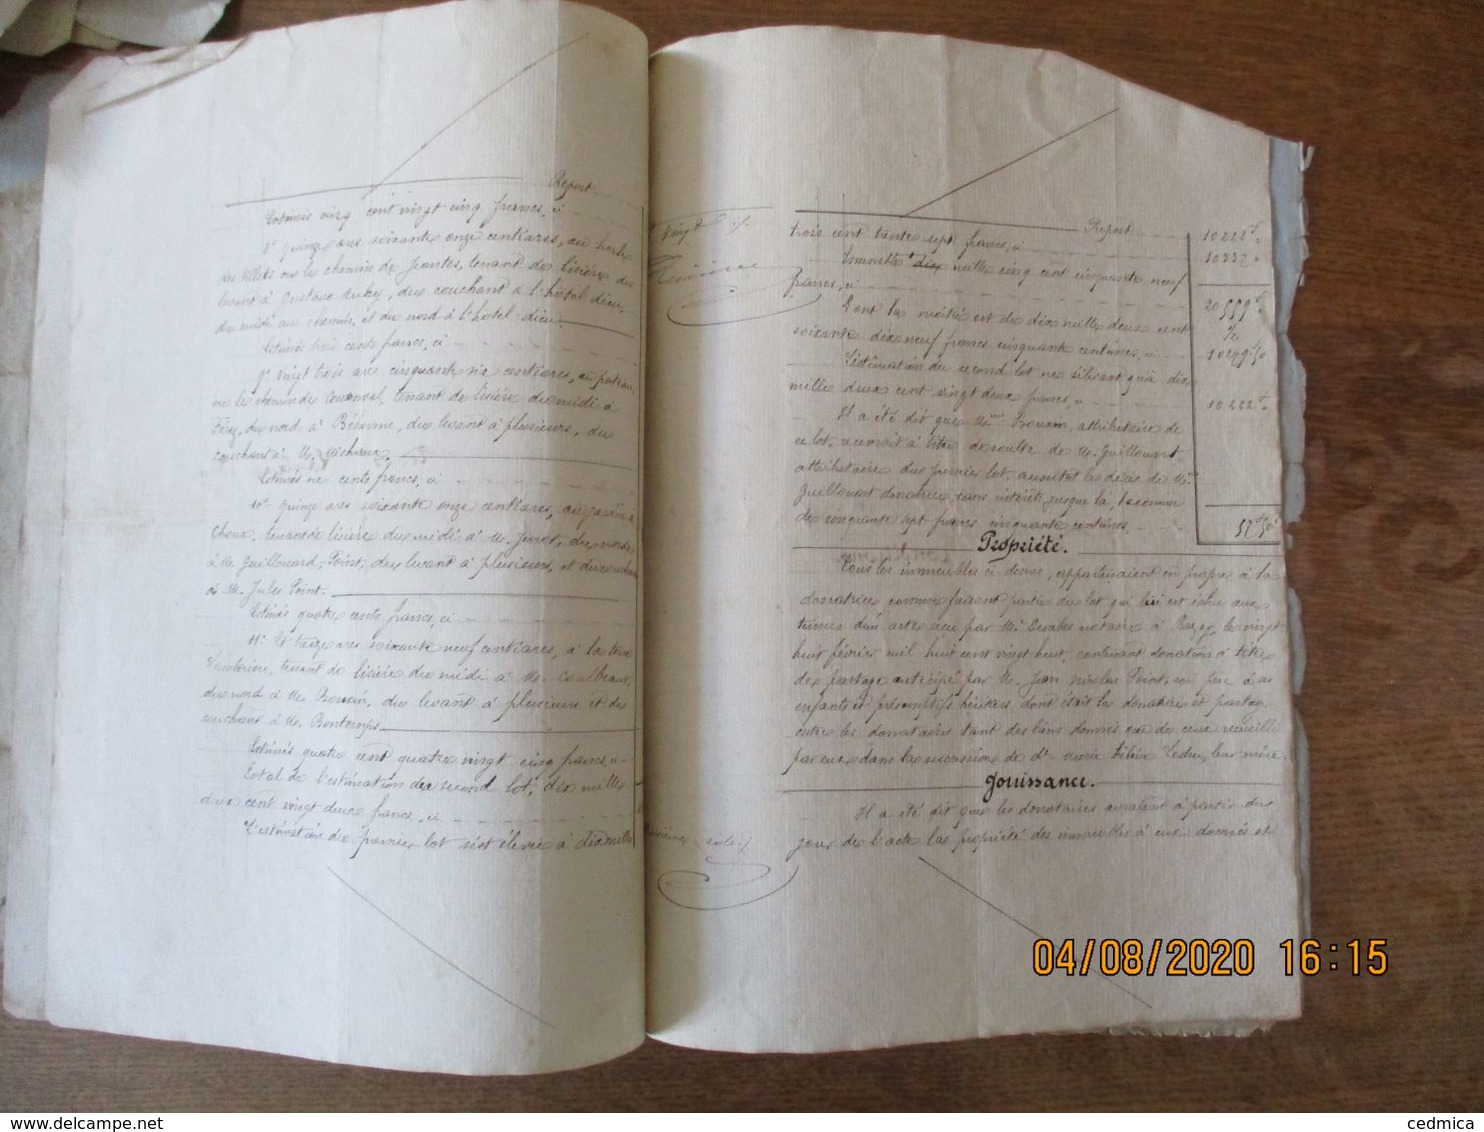 Report
Estimés cinq cent vingt cinq francs, ci
8° quinze ares soixante onze centiares, au
des tillets ou le chemin de tenant de lisière du
levant à Gustave Aubry, du couchant à l'hôtel dieu,
du midi au chemin, et du nord à l'hôtel-dieu.
Estimés trois cents francs, ci
9° vingt trois ares cinquante six centiares, au poteau
ou le chemin de Courval, tenant de lisière du midi à
Féry, du nord à Béhenne, du levant à plusieurs, du
couchant à M. Micheux.
Estimés six cents francs, ci
10° quinze ares soixante onze centiares, au jardin
tenant de lisière du midi à M. du nord
à M. Guillouard-Point, du levant à plusieurs, et du couchant
à M. Jules Point.
Estimés quatre cents francs, ci
11° Et treize ares soixante neuf centiares, à la terre
tenant de lisière du midi à M. Coulbeaux,
du nord à M. Bouxin, du levant à plusieurs et du
couchant à M. Bontemps
Estimés quatre cent quatre vingt cinq francs, ci
Total de l'estimation du second lot, dix mille
deux cent vingt deux francs, ci
L'estimation du premier lot s'est élevée à dix mille
Report 10222 f
trois cent trente sept francs, ci 10337 "
Ensemble dix mille cinq cent cinquante neuf
francs, ci 20559 f
Dont la moitié est de dix mille deux cent 1/2
soixante dix neuf francs cinquante centimes, ci 10279.50
L'estimation du second lot ne s'élevant qu'à dix
mille deux cent vingt deux francs, ci 10222 f
Il a été dit que Mme Bouxin, attributaire de
ce lot, recevrait à titre de soulte de M. Guillouart
attributaire du premier lot, aussitôt le décès de Me
Guillouart donatrice, sans intérêts jusque là, la somme
de cinquante sept francs cinquante centimes, 57 f 50
Propriété.
Tous les immeubles ci-dessus, appartenaient en propre à la
donatrice comme faisant partie du lot qui lui est échu aux
termes d'un acte reçu par Me notaire à Rozoy, le vingt
huit février mil huit cent vingt huit, contenant donation à titre
de partage anticipé par M. Jean Nicolas Point, en fav à ses
enfants et présomptifs héritiers dont était la donatrice et partage
entre les donataires tant des biens donnés que de ceux recueillis
par eux dans la succession de De Marie leur mère.
Jouissance.
Il a été dit que les donataires auraient à partir du
jour de l'acte la propriété des immeubles à eux donnés et
04/08/2020 16:15
cedmica